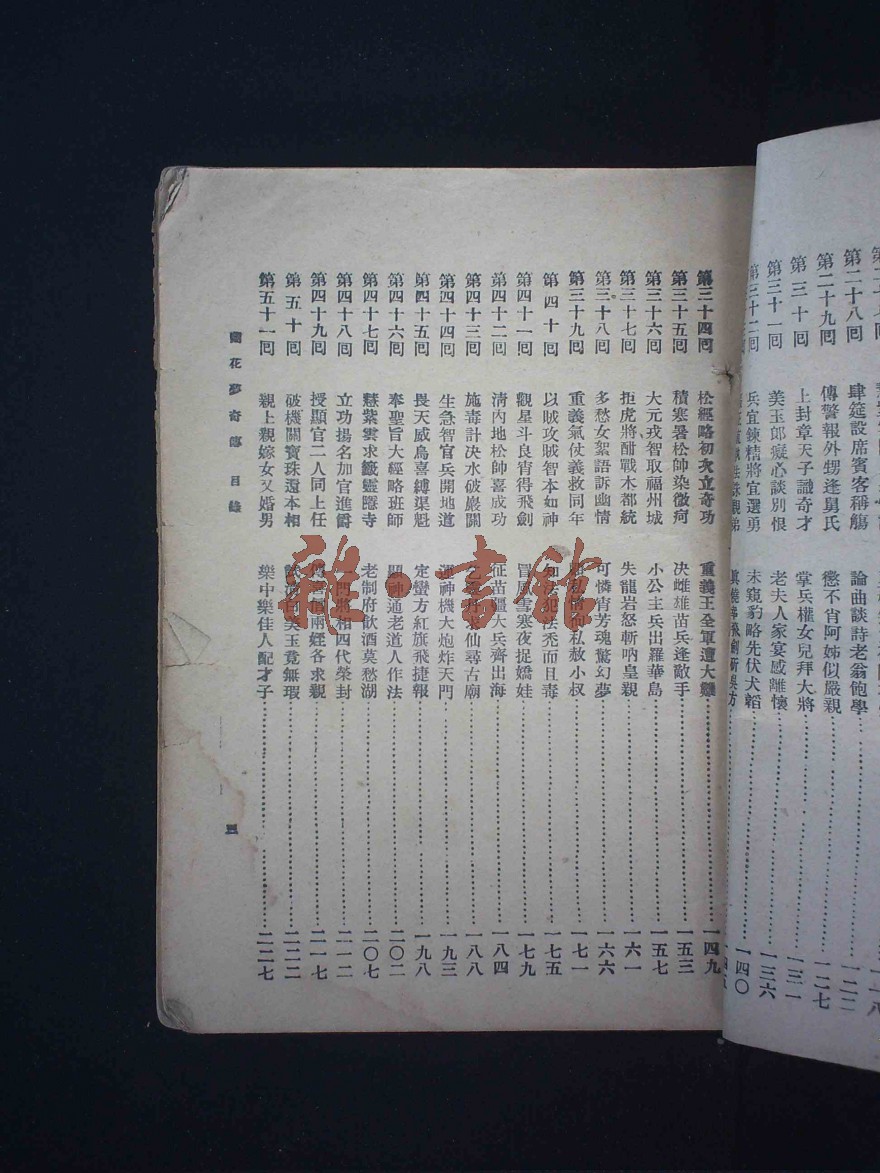 第二十八回 肆筵設席賓客稱觴 論曲談詩老翁飽學 一二二
第二十九回 傳警報外甥逢舅氏 懲不肖阿姊似嚴親 一二七
第三十回 上封章天子識奇才 掌兵權女兒拜大將 一三一
第三十一回 美玉郎癡心談別恨 老夫人家宴感離懷 一三六
第三十二回 兵宜鍊精將宜選勇 未窺豹略先伏犬韜 一四〇
第三十四回 松經略初次立奇功 重義王全軍遭大難 一四九
第三十五回 積寒暑松帥染微疴 決雌雄苗兵逢敵手 一五三
第三十六回 大元戎智取福州城 小公主兵出羅華島 一五七
第三十七回 拒虎將酣戰木都統 失龍岩怒斬吶皇親 一六一
第三十八回 多愁女絮語訴幽情 可憐宵芳魂驚幻夢 一六六
第三十九回 重義氣仗義救同年 私赦小叔 一七一
第四十回 以賊攻賊智本如神 知法犯法禿而且毒 一七五
第四十一回 觀星斗良宵得飛劍 冒風雪寒夜捉嬌娃 一七九
第四十二回 清內地松帥喜成功 征苗疆大兵齊出海 一八四
第四十三回 施毒計決水破巖關 求仙尋古廟 一八八
第四十四回 生急智官兵開地道 運神機大炮炸天門 一九三
第四十五回 畏天威烏喜縛渠魁 定蠻方紅旗飛捷報 一九八
第四十六回 奉聖旨大經略班師 顯神通老道人作法 二〇二
第四十七回 慧紫雲求籤靈隱寺 老制府飲酒莫愁湖 二〇七
第四十八回 立功揚名加官進爵 一門將相四代榮封 二一二
第四十九回 授顯官二人同上任 兩姪各求親 二一七
第五十回 破機關寶珠還本相 美玉竟無瑕 二二二
第五十一回 親上親嫁女又婚男 樂中樂佳人配才子 二二七
蘭花夢奇傳 目錄
三
雜·書館